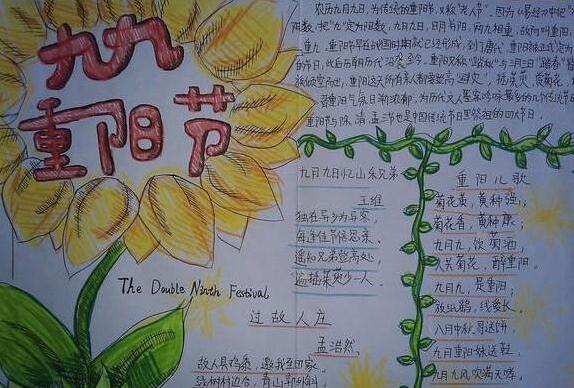 九九
重阳节
农历九月九日,为传统的重阳节,又称"老人节"。因为《易经》中把"
阳数,把"九"定为阳数,九月九日,日月并阳,两九相重,故而叫重阳,
重九,重阳节早在战国时期就已经形成,到了唐代,重阳被正式定为
的节日,此后历朝历代沿袭至今。重阳又称"踏秋"与
重阳这天所有亲人都要登高"避灾",插茱萸,赏菊花
为历代文人墨客吟咏最多的几个传统节日
重阳节与除、清、盂三节也是中国传统节日里祭祖的四大节日。
九月九日忆山东兄弟
王维
独在异乡为异客,
每逢佳节倍思亲。
遥知兄弟登高处,
遍插茱萸少一人。
重阳儿歌
菊花黄,黄种强;
菊花香,黄种康;
九月九,饮菊酒,
人共菊花,醉重阳。
九月九,是重阳;
放纸鹞,线爱长。
八月中秋哥送饼,
九月重阳妹送鞋,
九月九风吹满天哮。
The Double Ninth Festival
过故人庄
孟浩然
故人具鸡黍,邀我至田家。
绿树村边合,青山郭外斜